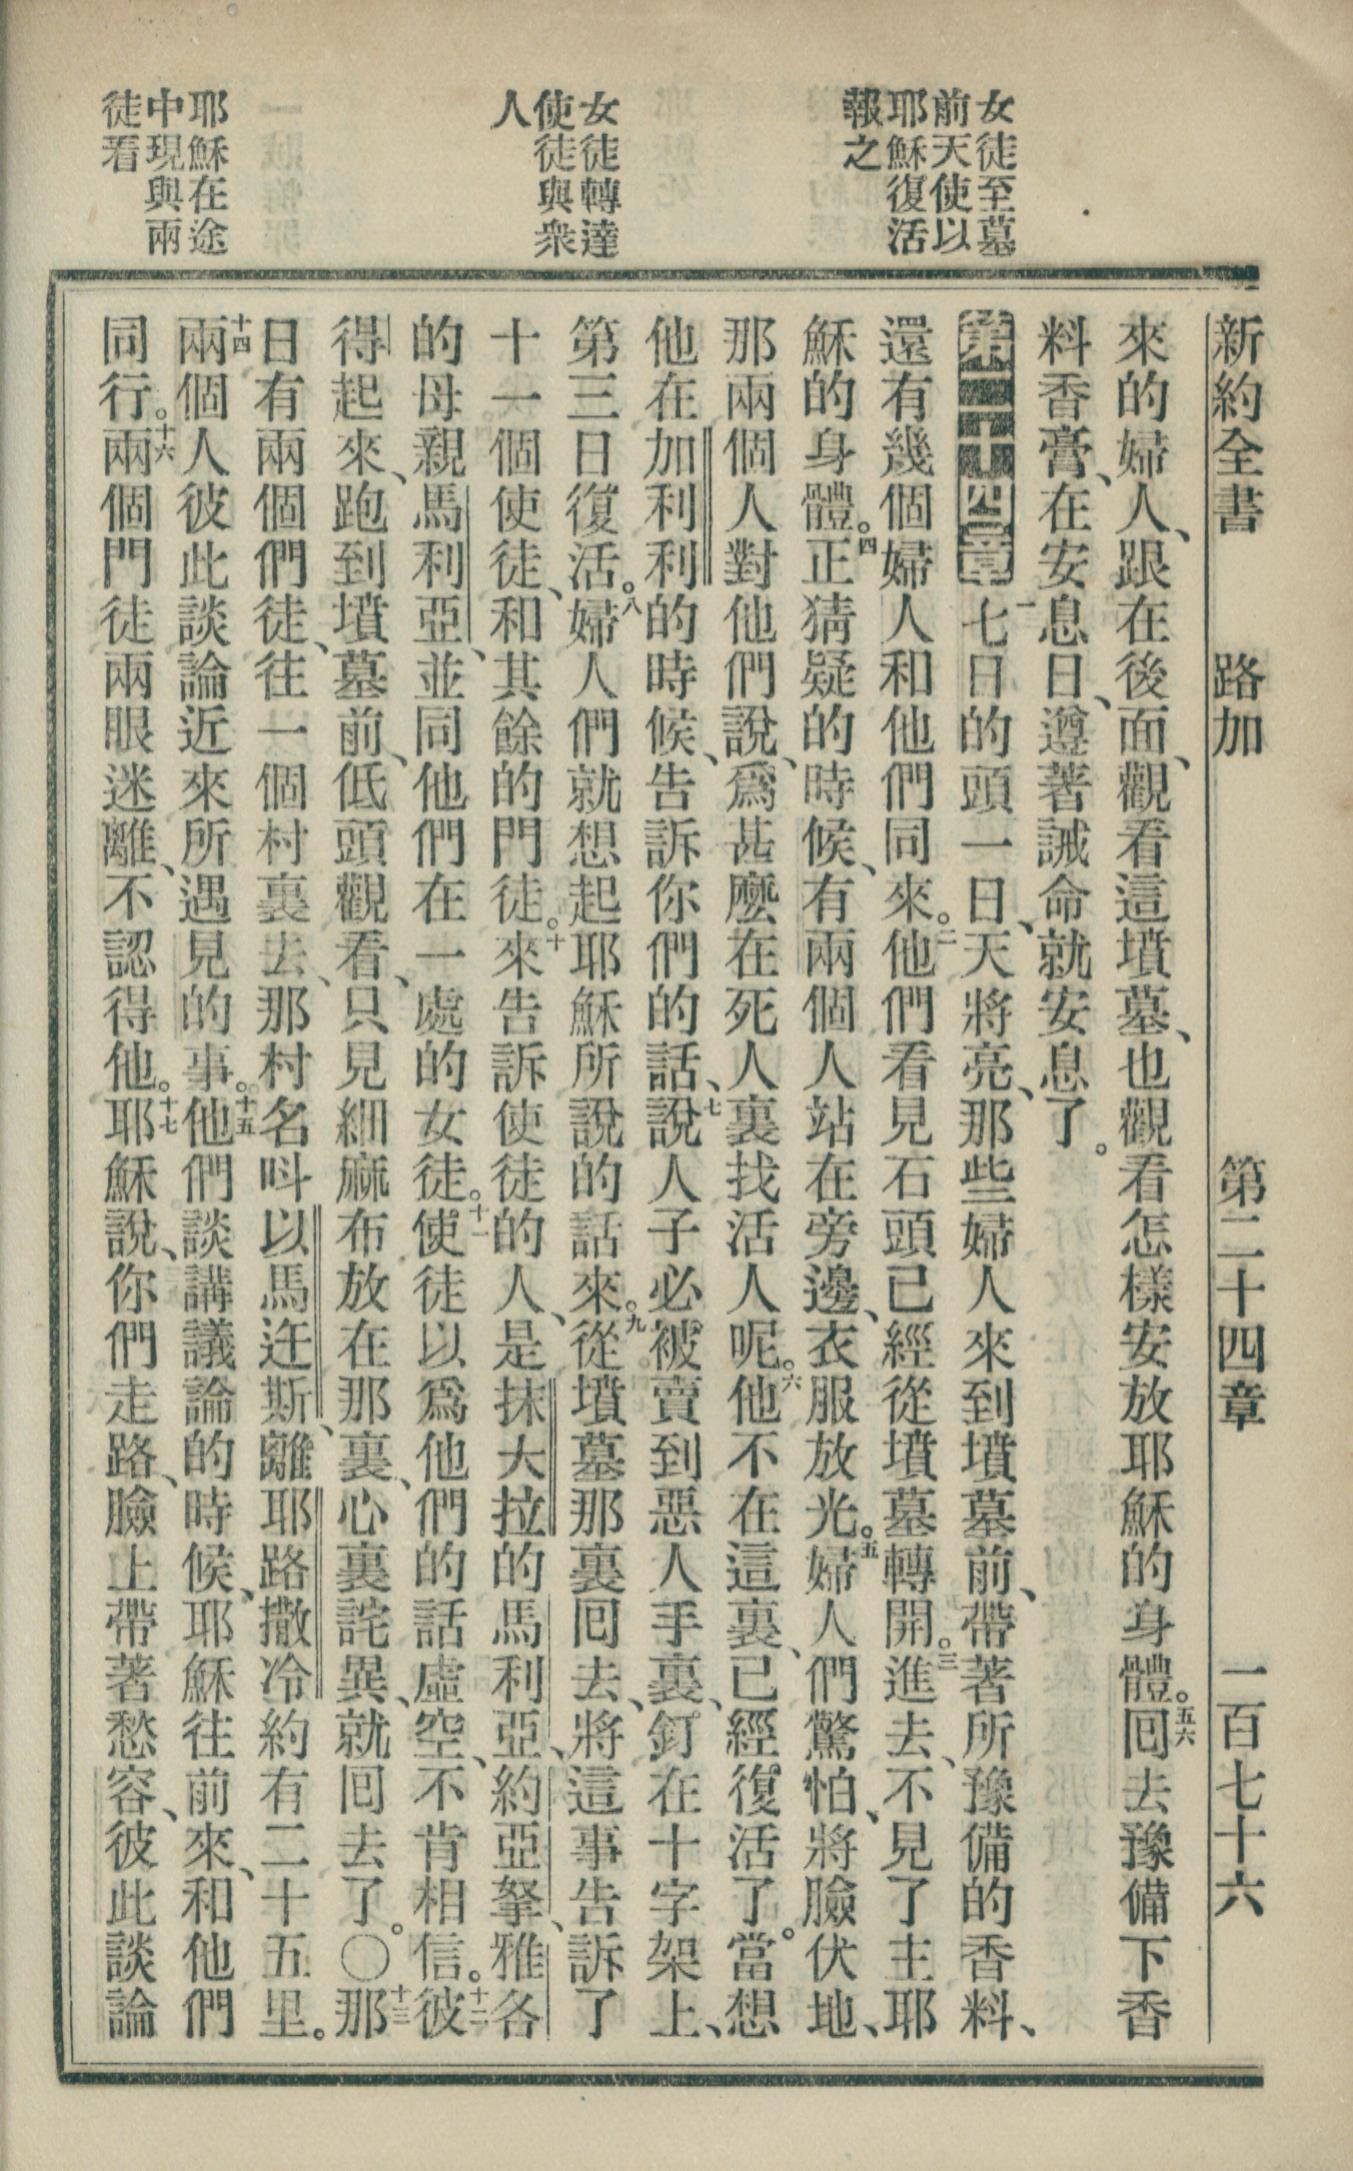 女徒至墓
前天使以
耶穌復活
報之
女徒轉達
使徒與衆
人
耶穌在途
中現與兩
徒看
新約全書　路加　第二十四章　一百七十六
來的婦人、跟在後面、觀看這墳墓、也觀看怎樣安放耶穌的身體。五六囘去豫備下香
料香膏、在安息日、遵著誡命就安息了。
第二十四章 一七日的頭一日、天將亮、那些婦人來到墳墓前、帶著所豫備的香料、
還有幾個婦人和他們同來。二他們看見石頭已經從墳墓轉開。三進去、不見了主耶
穌的身體。四正猜疑的時候、有兩個人站在旁邊、衣服放光。五婦人們驚怕、將臉伏地、
那兩個人對他們說、爲甚麼在死人裏找活人呢。六他不在這裏、已經復活了。當想
他在加利利的時候、告訴你們的話、七說人子必被賣到惡人手裏、釘在十字架上、
第三日復活。八婦人們就想起耶穌所說的話來。九從墳墓那裏囘去、將這事告訴了
十一個使徒、和其餘的門徒。十來告訴使徒的人、是抹大拉的馬利亞、約亞拏、雅各
的母親馬利亞、並同他們在一處的女徒。十一使徒以爲他們的話虛空、不肯相信。十二彼
得起來、跑到墳墓前、低頭觀看、只見細麻布放在那裏、心裏詫異、就囘去了。〇十三那
日有兩個們徒、往一個村裏去、那村名呌以馬迕斯、離耶路撒冷約有二十五里。
十四兩個人彼此談論近來所遇見的事。十五他們談講議論的時候、耶穌往前來、和他們
同行。十六兩個門徒兩眼迷離、不認得他。十七耶穌說、你們走路、臉上帶著愁容、彼此談論